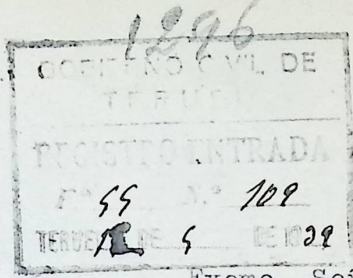 1296
GOBIERNO CIVIL DE
TERUEL
REGISTRO ENTRADA
Fº 55 N.º 109
TERUEL DE 5 DE 1939